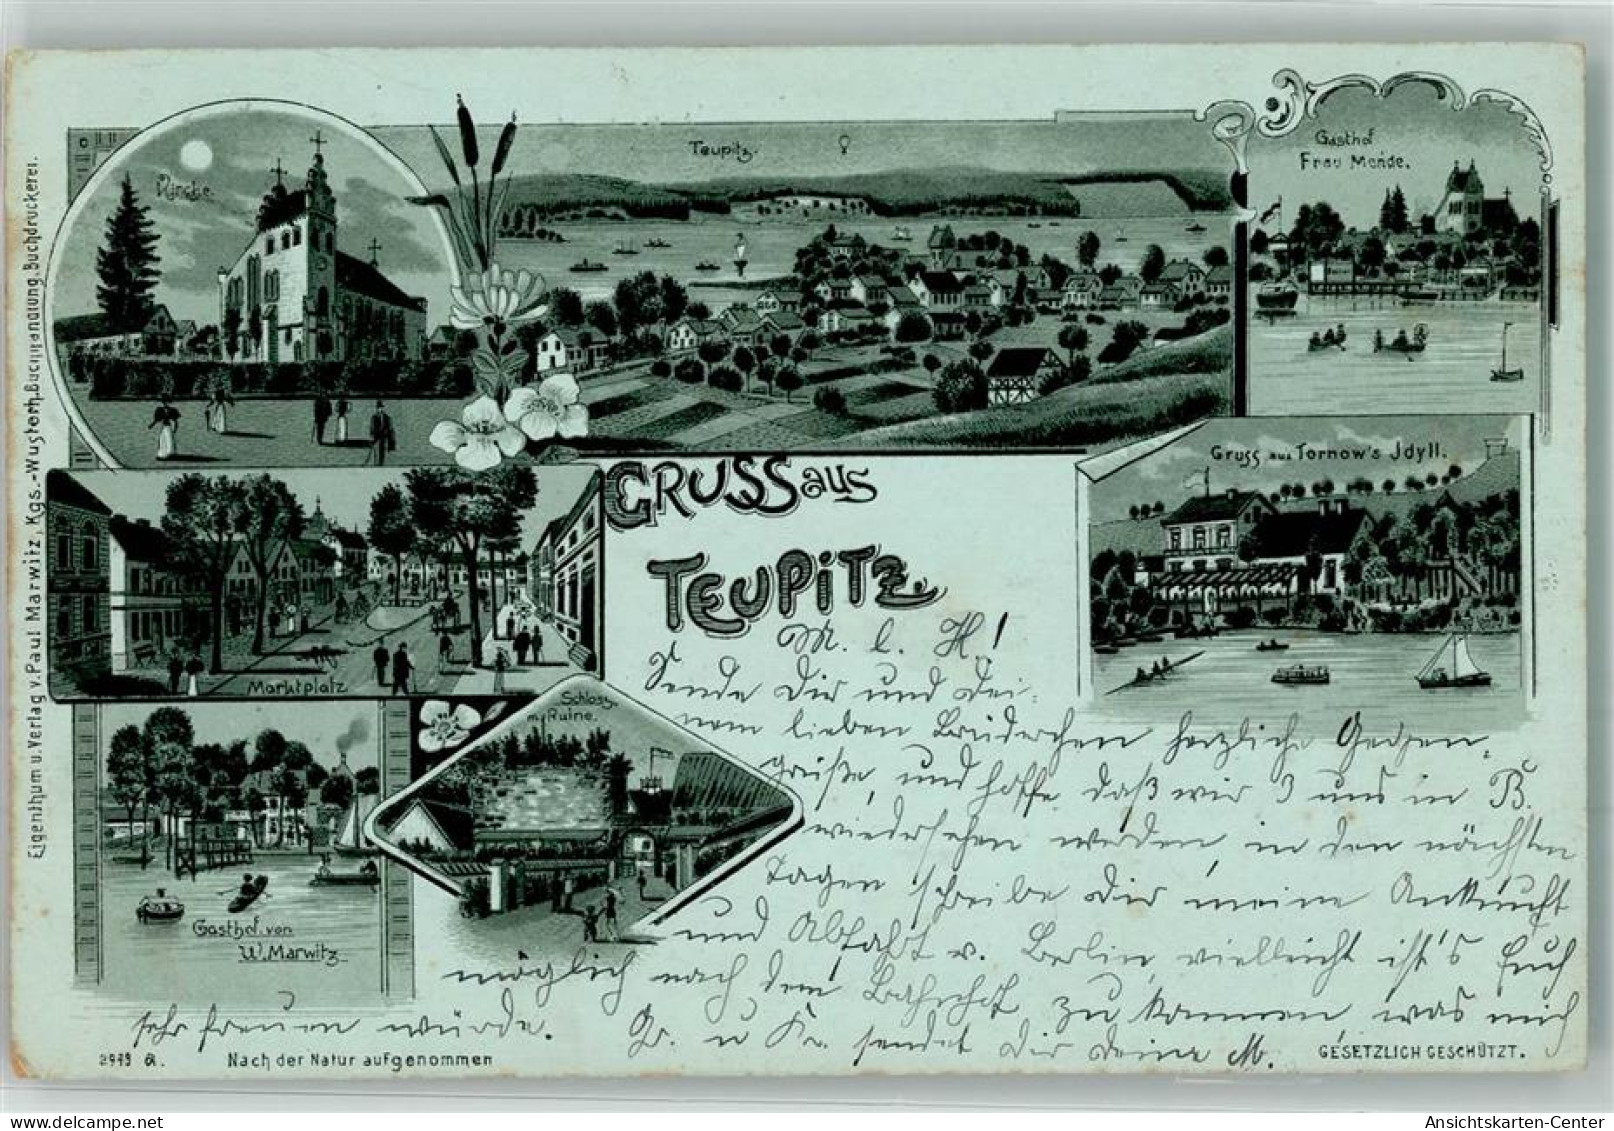 Kirche.
Teupitz.
Gasthof
Frau Mende.
Gruss aus Tornow's Jdyll.
Marktplatz
Schloss
m. Ruine.
Gasthof von
W. Marwitz
GRUSS aus
TEUPITZ.
M. l. H!
Sende Dir und Dei-
nem lieben Brüderchen herzliche Gegen-
grüße, und hoffe, daß wir 3 uns in B.
wiedersehen werden, in den nächsten
Tagen schreibe Dir meine Ankunft
und Abfahrt v. Berlin, vielleicht ist's Euch
möglich nach dem Bahnhof zu kommen, was mich
sehr freuen würde. Gr. u Kr. sendet Dir Deine M.
2973 a. Nach der Natur aufgenommen
GESETZLICH GESCHÜTZT.
Eigenthum u. Verlag v. Paul Marwitz, Kgs.-Wusterh, Buchhandlung, Buchdruckerei.
Ansichtskarten-Center